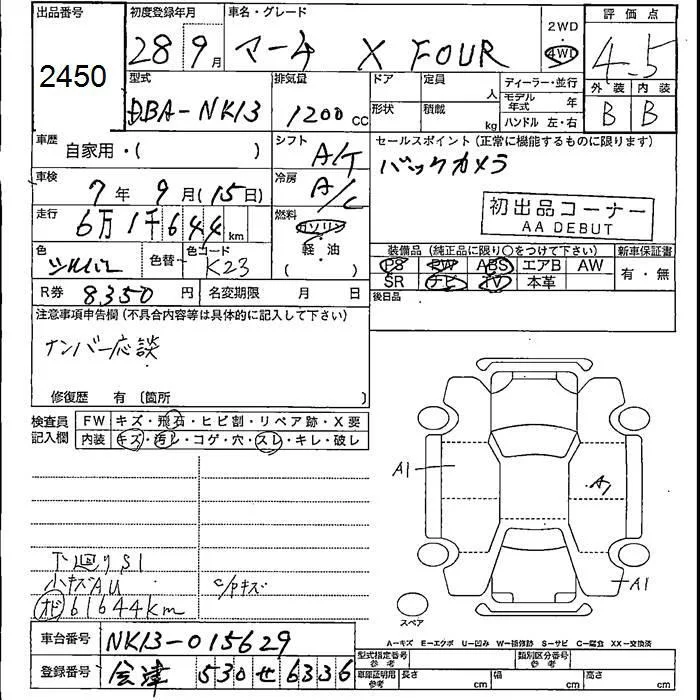 出品番号 初度登録年月 車名・グレード 2WD 評価点
2450 28年9月 マーチ X FOUR 4WD 4.5
外装 内装
B B
型式 排気量 ドア 定員 人 ディーラー・並行
DBA-NK13 1200 CC 形状 積載 kg モデル年式 年
ハンドル 左・右
車歴 自家用・( ) シフト A/T セールスポイント (正常に機能するものに限ります)
車検 7年9月(15日) 冷房 A/C バックカメラ
走行 6万1千644km 燃料 ガソリン 軽・油 ( )
初出品コーナー
AA DEBUT
色 シルバー 色替 色コード K23
装備品 (純正品に限り○をつけて下さい) 新車保証書
PS PW ABS エアB AW 有・無
SR ナビ TV 本革
R券 8350円 名変期限 月 日 後日品
注意事項申告欄(不具合内容等は具体的に記入して下さい)
ナンバー応談
修復歴 有 〔箇所 〕
検査員記入欄 FW キズ・飛石・ヒビ割・リペア跡・X要
内装 キズ・汚レ・コゲ・穴・スレ・キレ・破レ
A1 A1
A1
下廻りS1
小キズAU c/pキズ
オド 61644km
スペア
A-キズ E-エクボ U-凹み W-補修跡 S-サビ C-腐食 XX-交換済
車台番号 NK13-015629 型式指定番号 参考 類別区分番号 参考
登録番号 会津 530 せ 6336 車庫証明用 参考 長さ cm 幅 cm 高さ cm